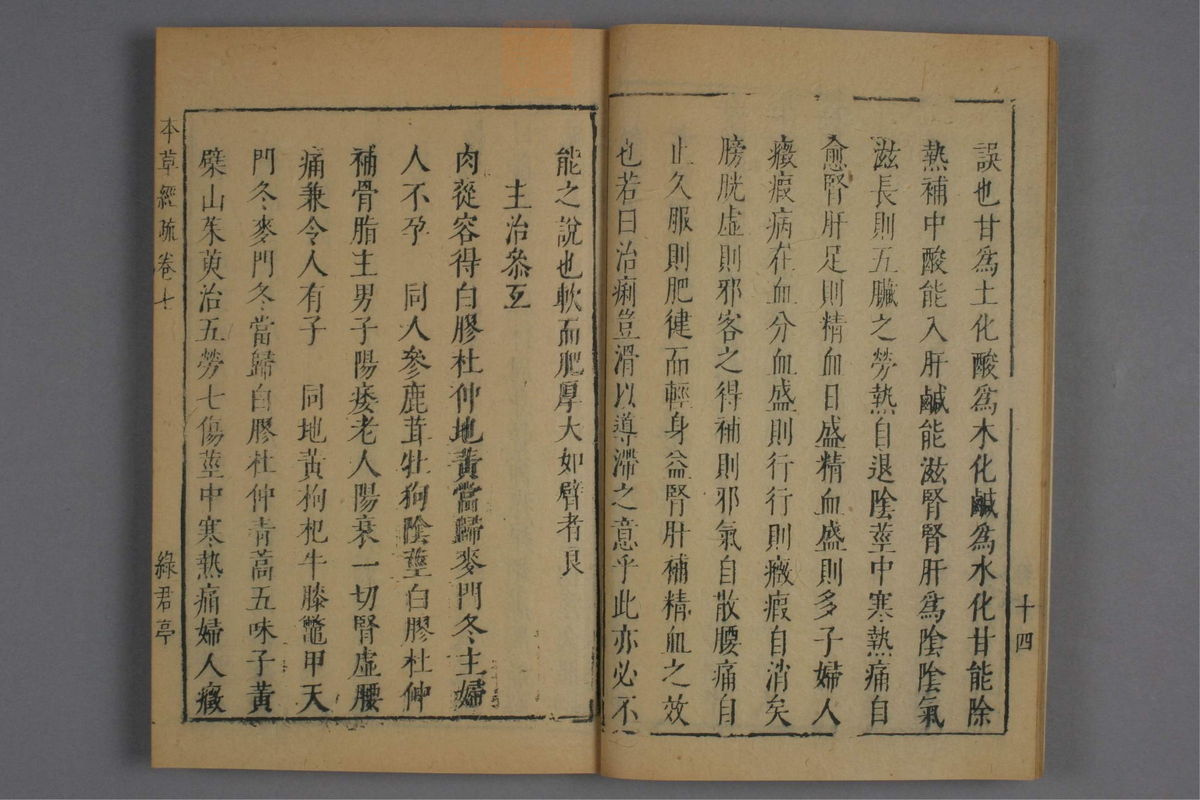 誤也甘爲土化酸爲木化鹹爲水化甘能除
熱補中酸能入肝鹹能滋腎腎肝爲陰陰氣
滋長則五臟之勞熱自退陰莖中寒熱痛自
愈腎肝足則精血日盛精血盛則多子婦人
癥瘕病在血分血盛則行行則癥瘕自消矣
膀胱虛則邪客之得補則邪氣自散腰痛自
止久服則肥健而輕身益腎肝補精血之效
也若曰治痢豈滑以導滯之意乎此亦必不
十四
能之說也軟而肥厚大如臂者良
主治叅互
肉蓯容得白膠杜仲地黃當歸麥門冬主婦
人不孕　同人參鹿茸牡狗陰莖白膠杜仲
補骨脂主男子陽痿老人陽衰一切腎虛腰
痛兼令人有子　同地黃枸杞牛膝鼈甲天
門冬麥門冬當歸白膠杜仲青蒿五味子黃
檗山茱萸治五勞七傷莖中寒熱痛婦人癥
本草經疏卷七
綠君亭